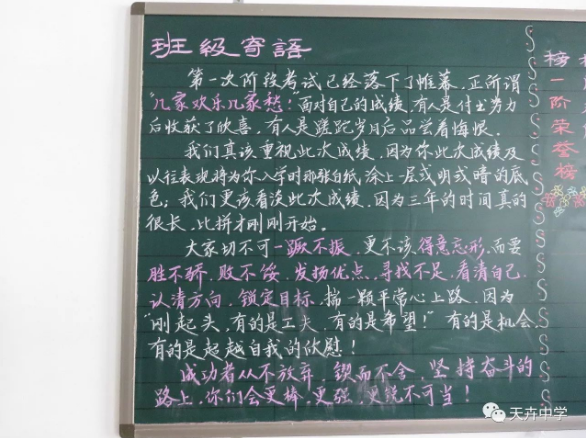 班级寄語
第一次阶段考试已经落下了帷幕,正所谓
"几家欢乐几家愁!"面对自己的成绩,有人是付出努力
后收获了欣喜,有人是蹉跎岁月后品尝着悔恨.
我们真该重视此次成绩,因为你此次成绩及
以往表现将为你入学时那张白纸,涂上一层或明或暗的底
色;我们更该看淡此次成绩,因为三年的时间真的
很长,比拼才刚刚开始。
大家切不可一蹶不振,更不该得意忘形,而要
胜不骄,败不馁,发扬优点,寻找不足,看清自己,
认清方向,锁定目标,揣一颗平常心上路,因为
"刚起头,有的是工夫,有的是希望!"有的是机会,
有的是超越自我的欣慰!
成功者从不放弃,锲而不舍,坚持奋斗的
路上,你们会更棒,更强,更锐不可当!
阶荣誉榜
天卉中学